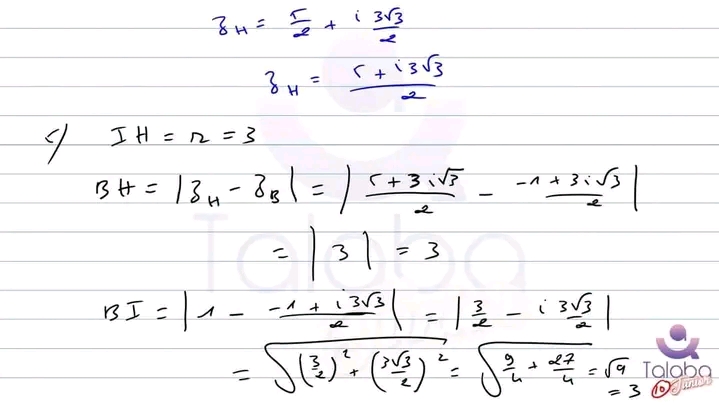 z_H = 5/2 + i 3√3/2
z_H = (5 + i3√3)/2
c) IH = r = 3
BH = |z_H - z_B| = |(5 + 3i√3)/2 - (-1 + 3i√3)/2|
= |3| = 3
BI = |1 - (-1 + i3√3)/2| = |3/2 - i 3√3/2|
= √((3/2)² + (3√3/2)²) = √(9/4 + 27/4) = √9
= 3
Talaba
Talaba
Junior
10